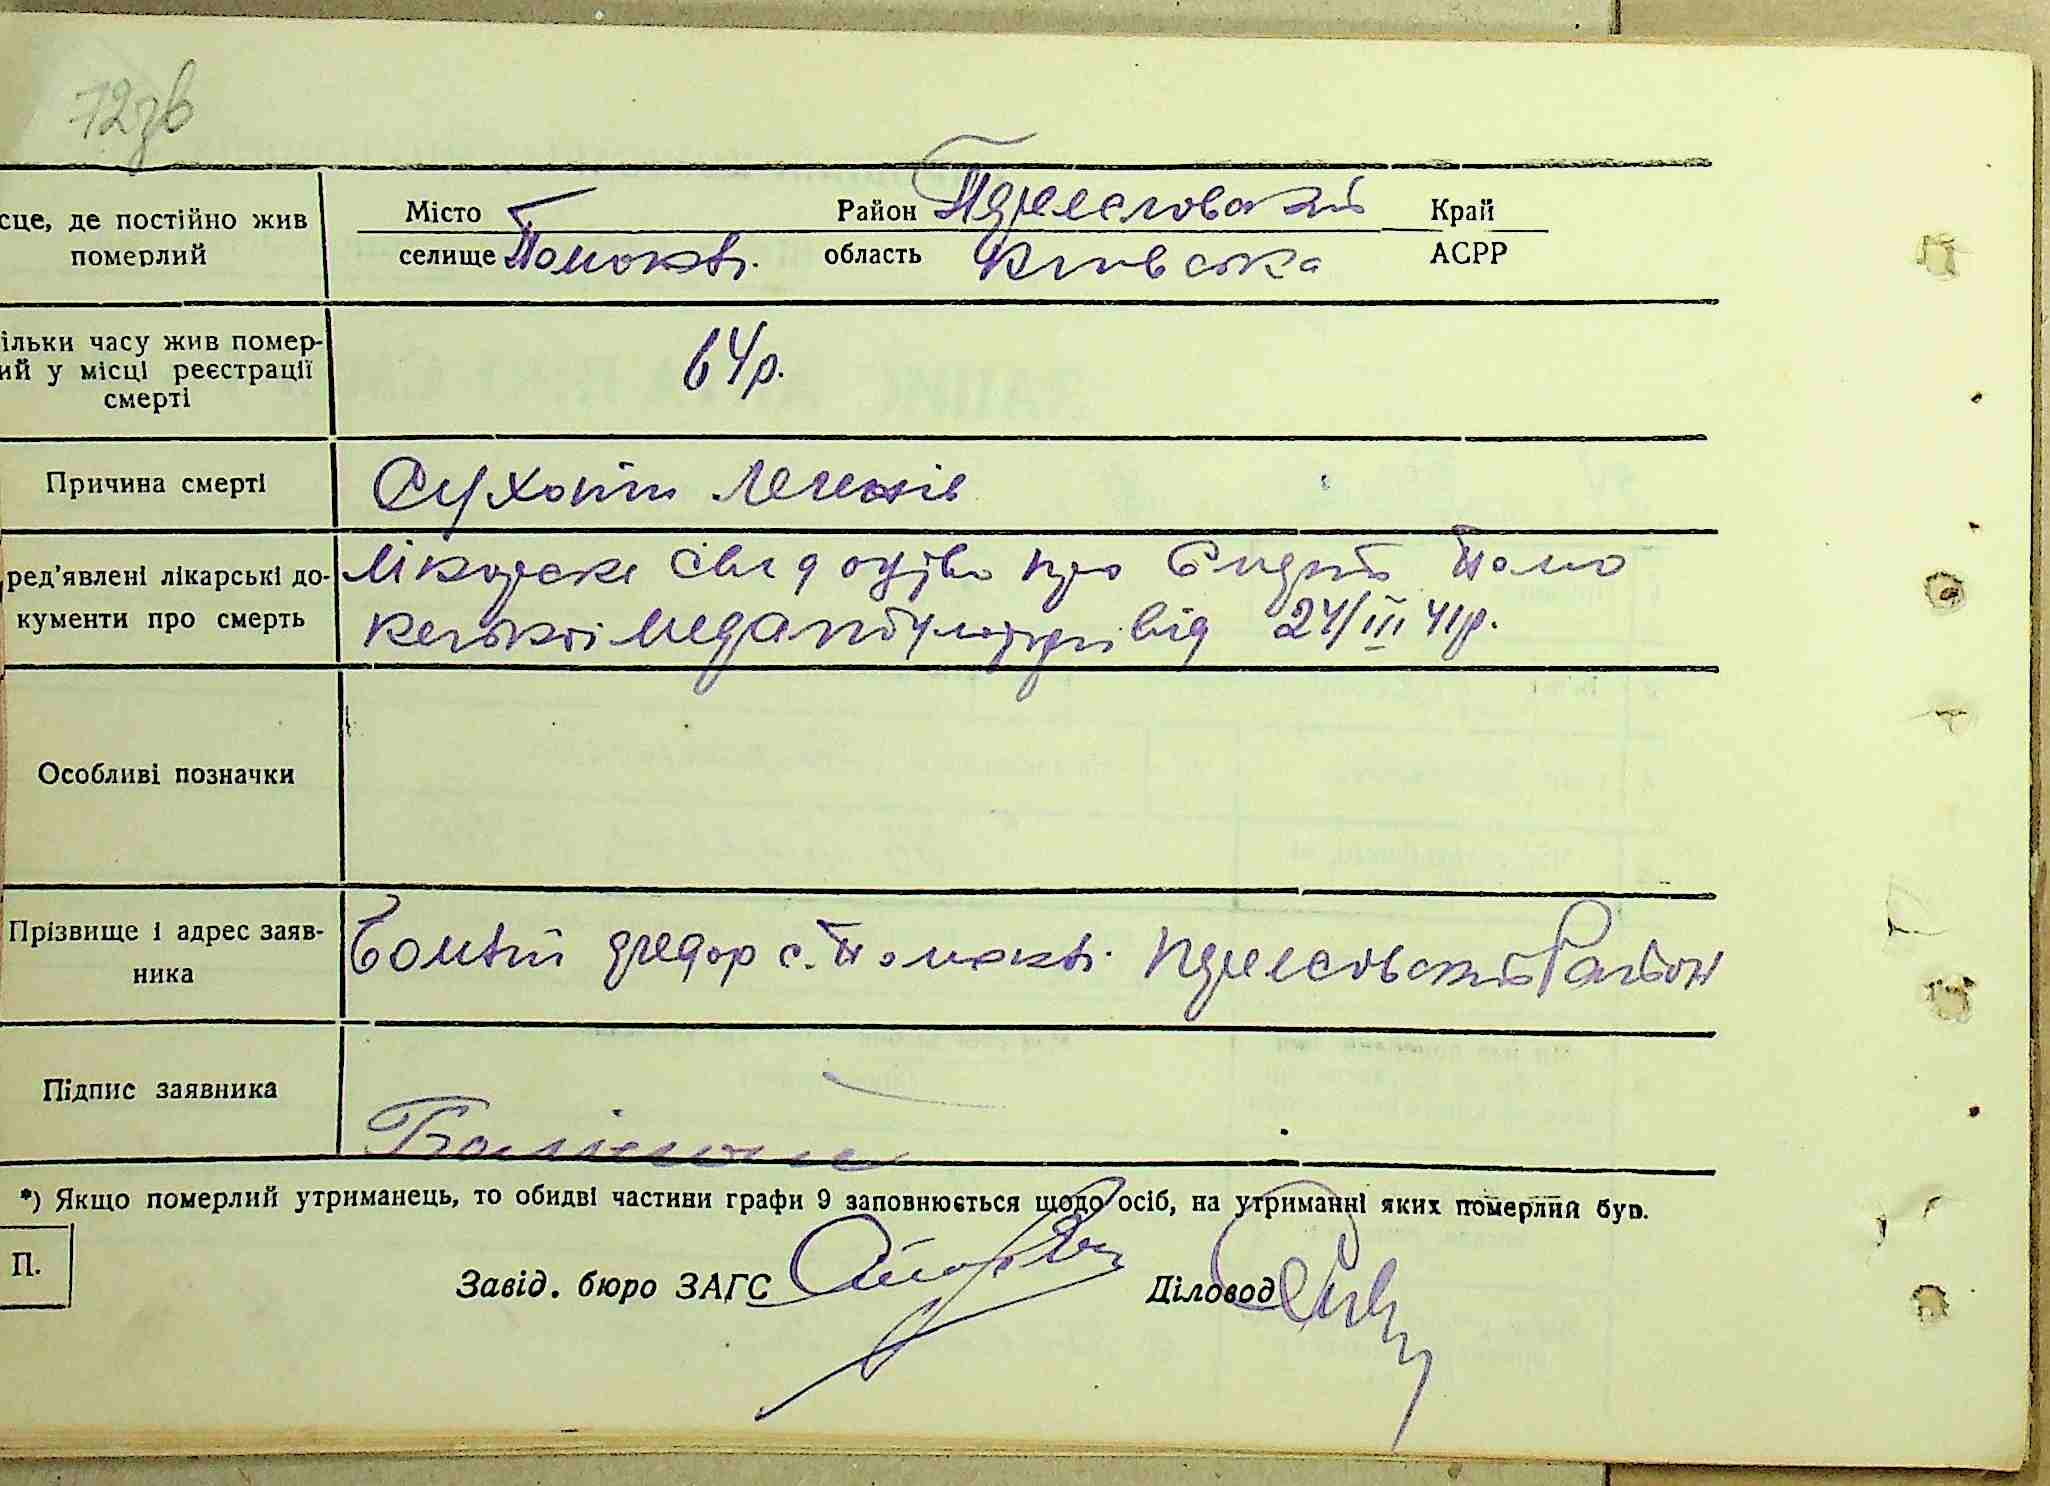 72зв
сце, де постійно жив
померлий
Місто
селище Помоклі.
Район Переяславський
область Київська
Край
АСРР
ільки часу жив помер-
ий у місці реєстрації
смерті
64р.
Причина смерті
Сухоти легенів
ред'явлені лікарські до-
кументи про смерть
Лікарське свідоцтво про смерть Помо
кельської медамбулаторії від 24/III 41р.
Особливі позначки
Прізвище і адрес заяв-
ника
с. Помоклі. Переяславський Район
Підпис заявника
*) Якщо померлий утриманець, то обидві частини графи 9 заповнюється щодо осіб, на утриманні яких померлий був.
П.
Завід. бюро ЗАГС
Діловод